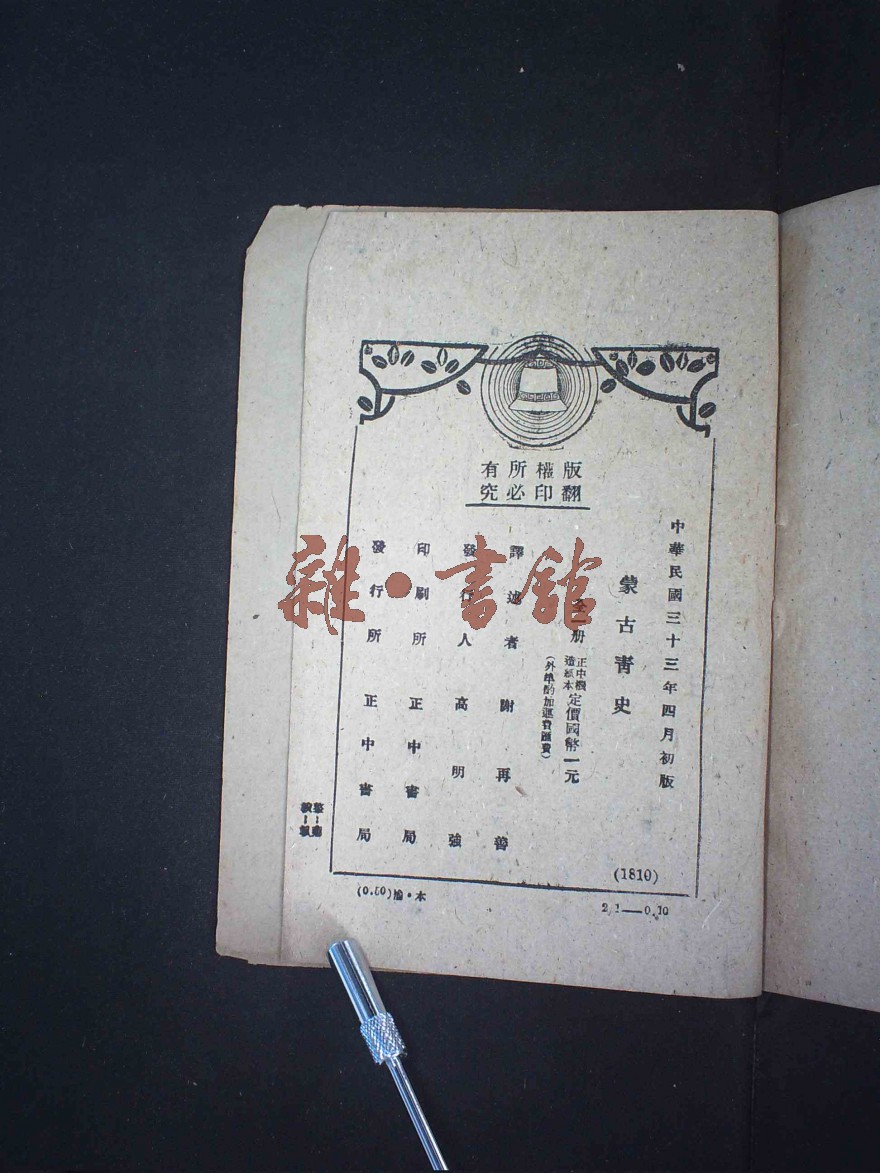 版權所有
翻印必究
中華民國三十三年四月初版
蒙古青史
全一册
正中機
造紙本
定價國幣一元
(外埠酌加運費匯費)
譯述者 謝再善
發行人 高明強
印刷所 正中書局
發行所 正中書局
(1810)
(0.50)渝·本
雜·書館